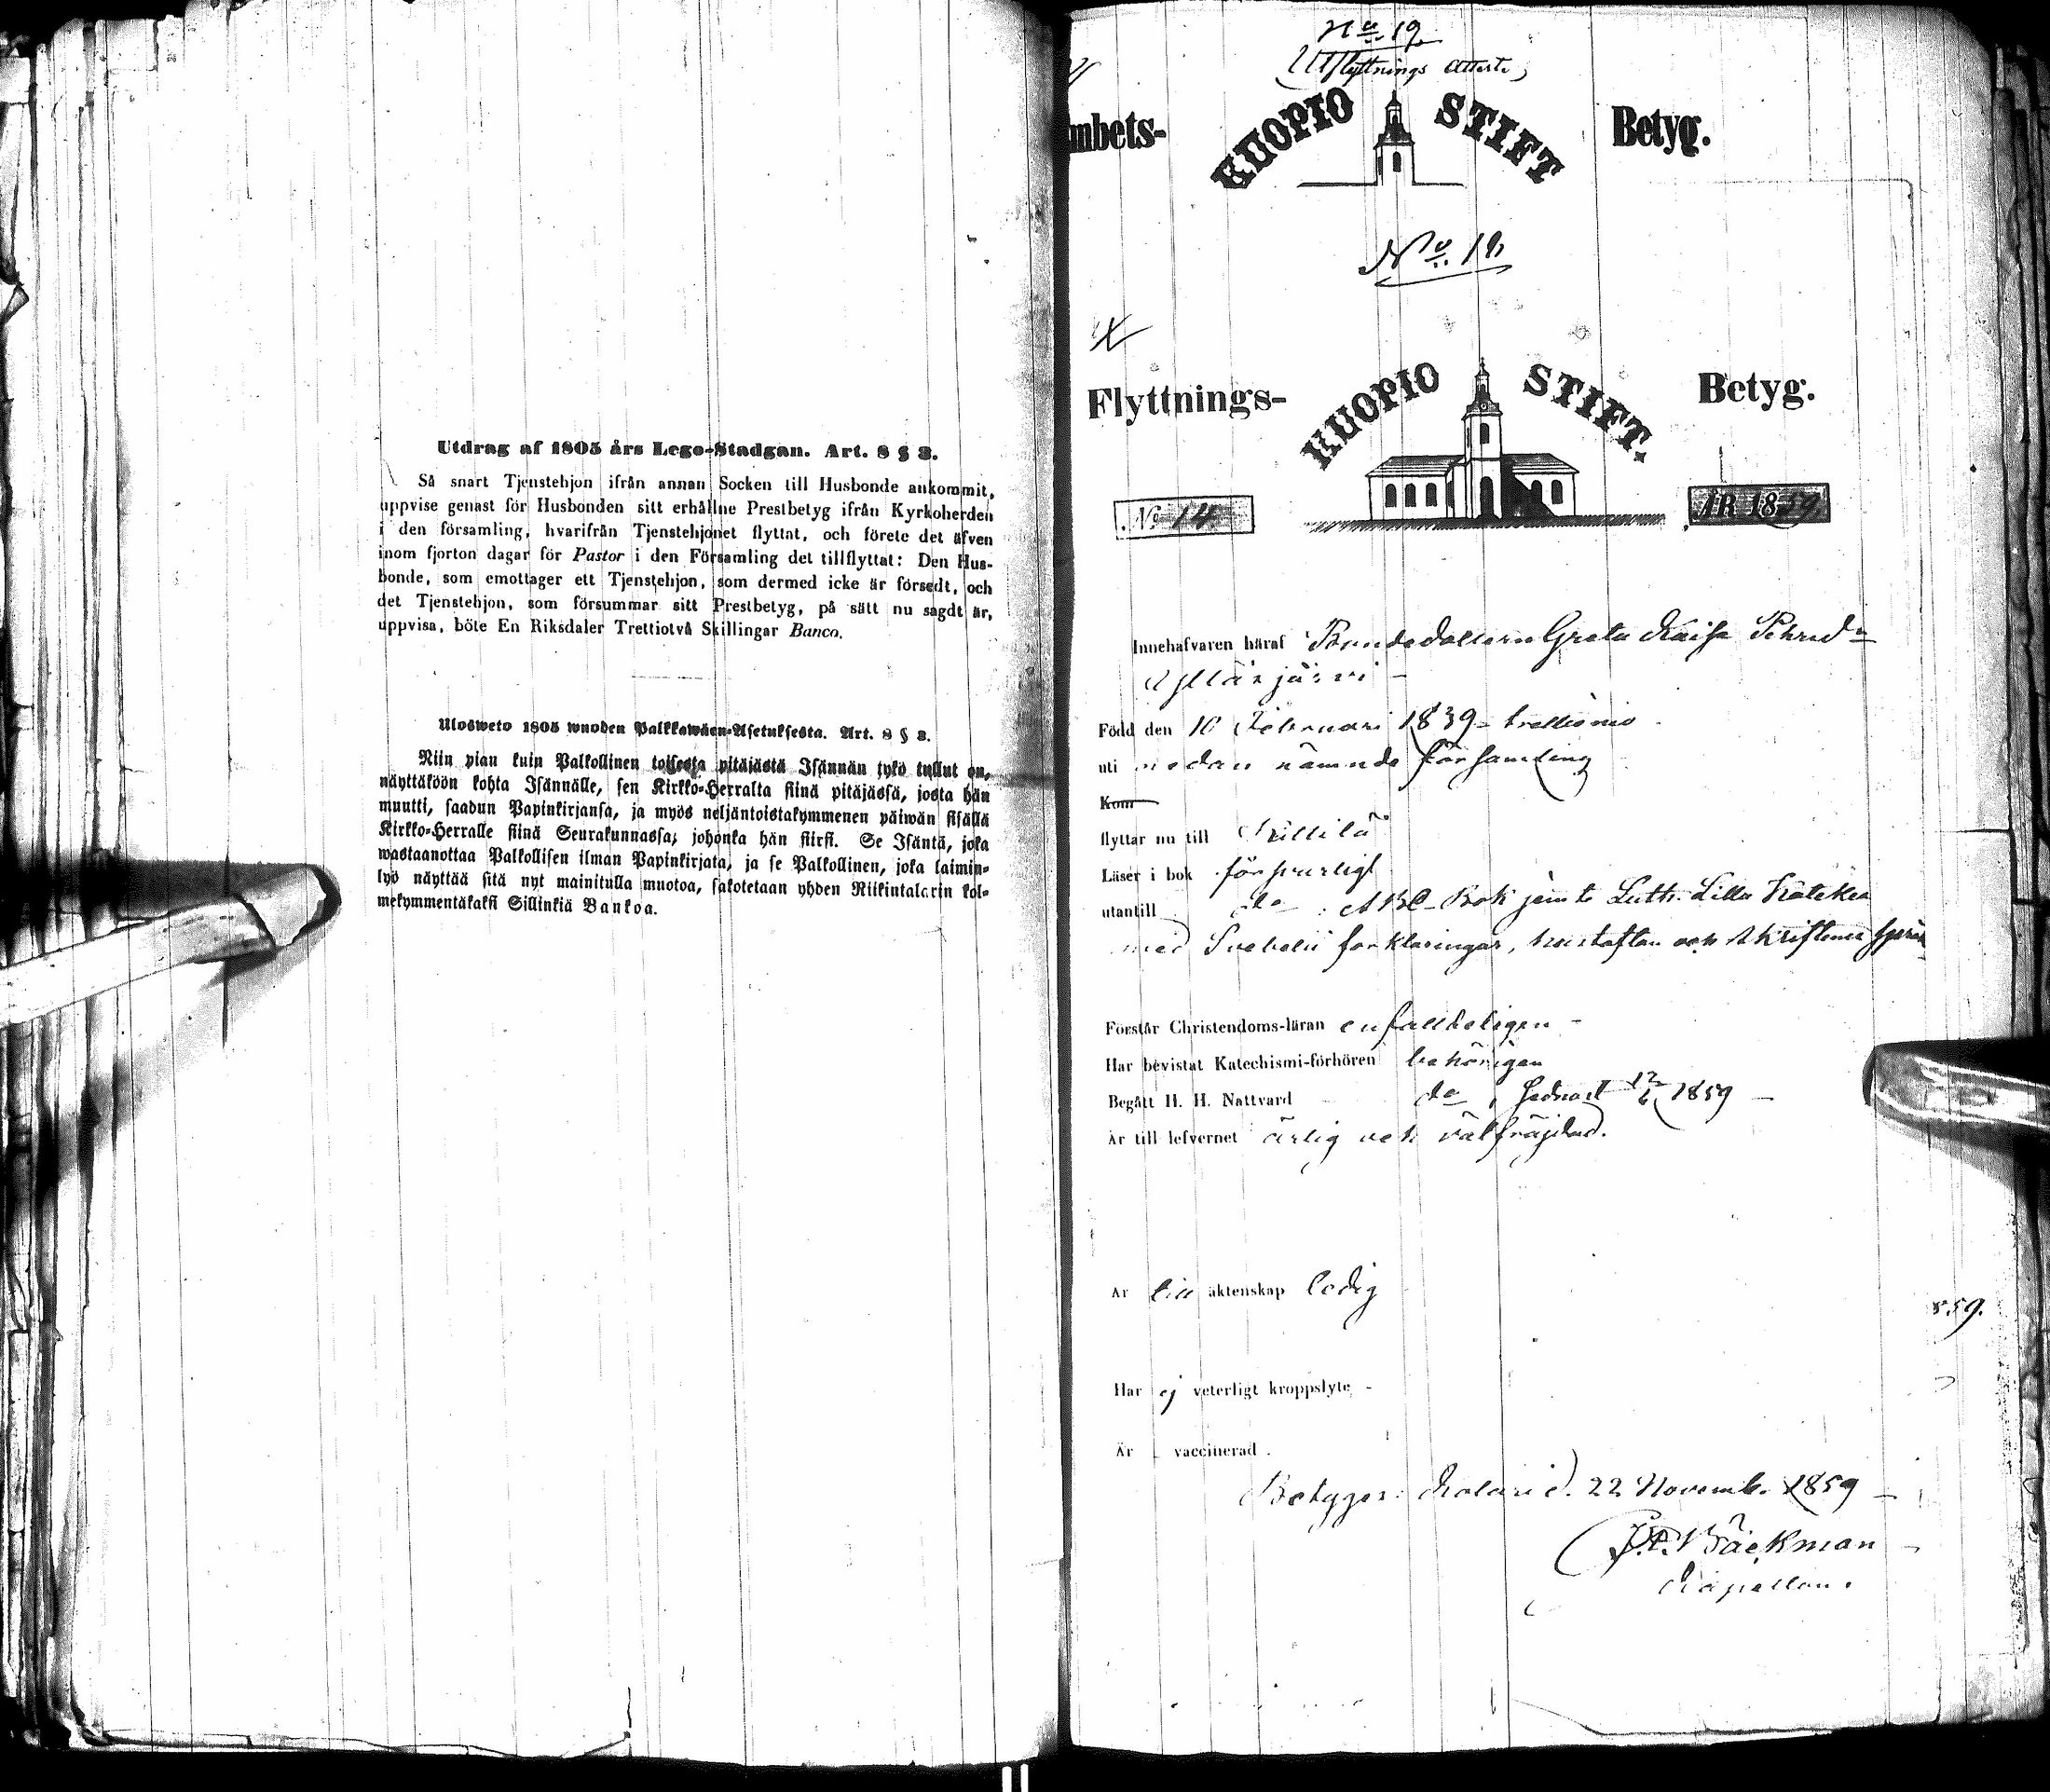 Utdrag af 1805 års Lego-Stadgan. Art. 8 § 3.
Så snart Tjenstehjon ifrån annan Socken till Husbonde ankommit,
uppvise genast för Husbonden sitt erhållne Prestbetyg ifrån Kyrkoherden
i den församling, hvarifrån Tjenstehjonet flyttat, och förete det äfven
inom fjorton dagar för Pastor i den Församling det tillflyttat: Den Hus-
bonde, som emottager ett Tjenstehjon, som dermed icke är försedt, och
det Tjenstehjon, som försummar sitt Prestbetyg, på sätt nu sagdt är,
uppvisa, böte En Riksdaler Trettiotvå Skillingar Banco.
Ulosweto 1805 wuoden Palkkawäen-Asetuksesta. Art. 8 § 3.
Niin pian kuin Palkollinen toisesta pitäjästä Isännän tykö tullut on,
näyttäköön kohta Isännälle, sen Kirkko-Herralta siinä pitäjässä, josta hän
muutti, saadun Papinkirjansa, ja myös neljäntoistakymmenen päiwän sisällä
Kirkko-Herralle siinä Seurakunnassa; johonka hän siirsi. Se Isäntä, joka
wastaanottaa Palkollisen ilman Papinkirjata, ja se Palkollinen, joka laimin-
lyö näyttää sitä nyt mainitulla muotoa, sakotetaan yhden Riikintalarin kol-
mekymmentäkaksi Sillinkiä Bankoa.
No 19
Utflyttnings Atteste
mbets- KUOPIO STIFT Betyg.
No
Flyttnings- KUOPIO STIFT. Betyg.
No 14 ÅR 1859
Innehafvaren häraf Bondedottern Greta Kaisa
Ylläsjärvi
Född den 10 Februari 1839 trettionio
uti nedan nämnde församling
Kom
flyttar nu till Kittilä
Läser i bok försvarligt
utantill do: ABC-Bok jemte Luth. Lilla Katekes
med Svebelii förklaringar, hustaflan och skriftenes språk
Förstår Christendoms-läran enfalldeligen
Har bevistat Katechismi-förhören behörigen
Begått H. H. Nattvard do, sednast 12/6 1859
Är till lefvernet ärlig och välfräjdad.
Är till äktenskap ledig
859.
Har ej veterligt kroppslyte
Är vaccinerad.
Betygar: Kolari d. 22 Novemb. 1859
Bäckman
Kapellan.